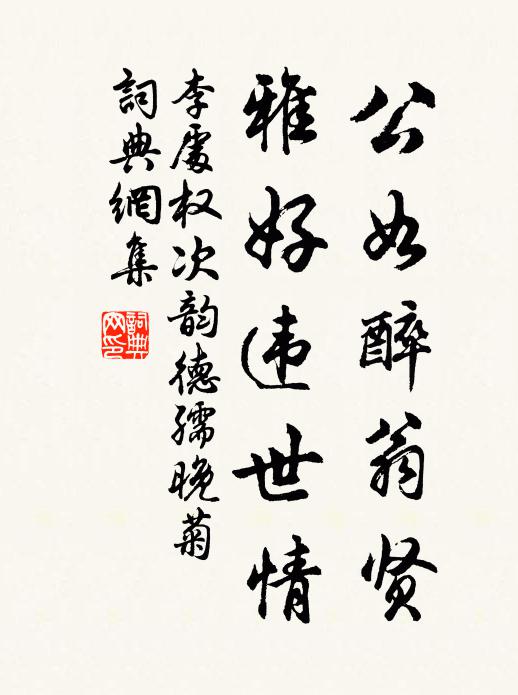 公如醉翁贤
雅好违世情
李處权次韵德孺晚菊
詞典網集
詞典网印